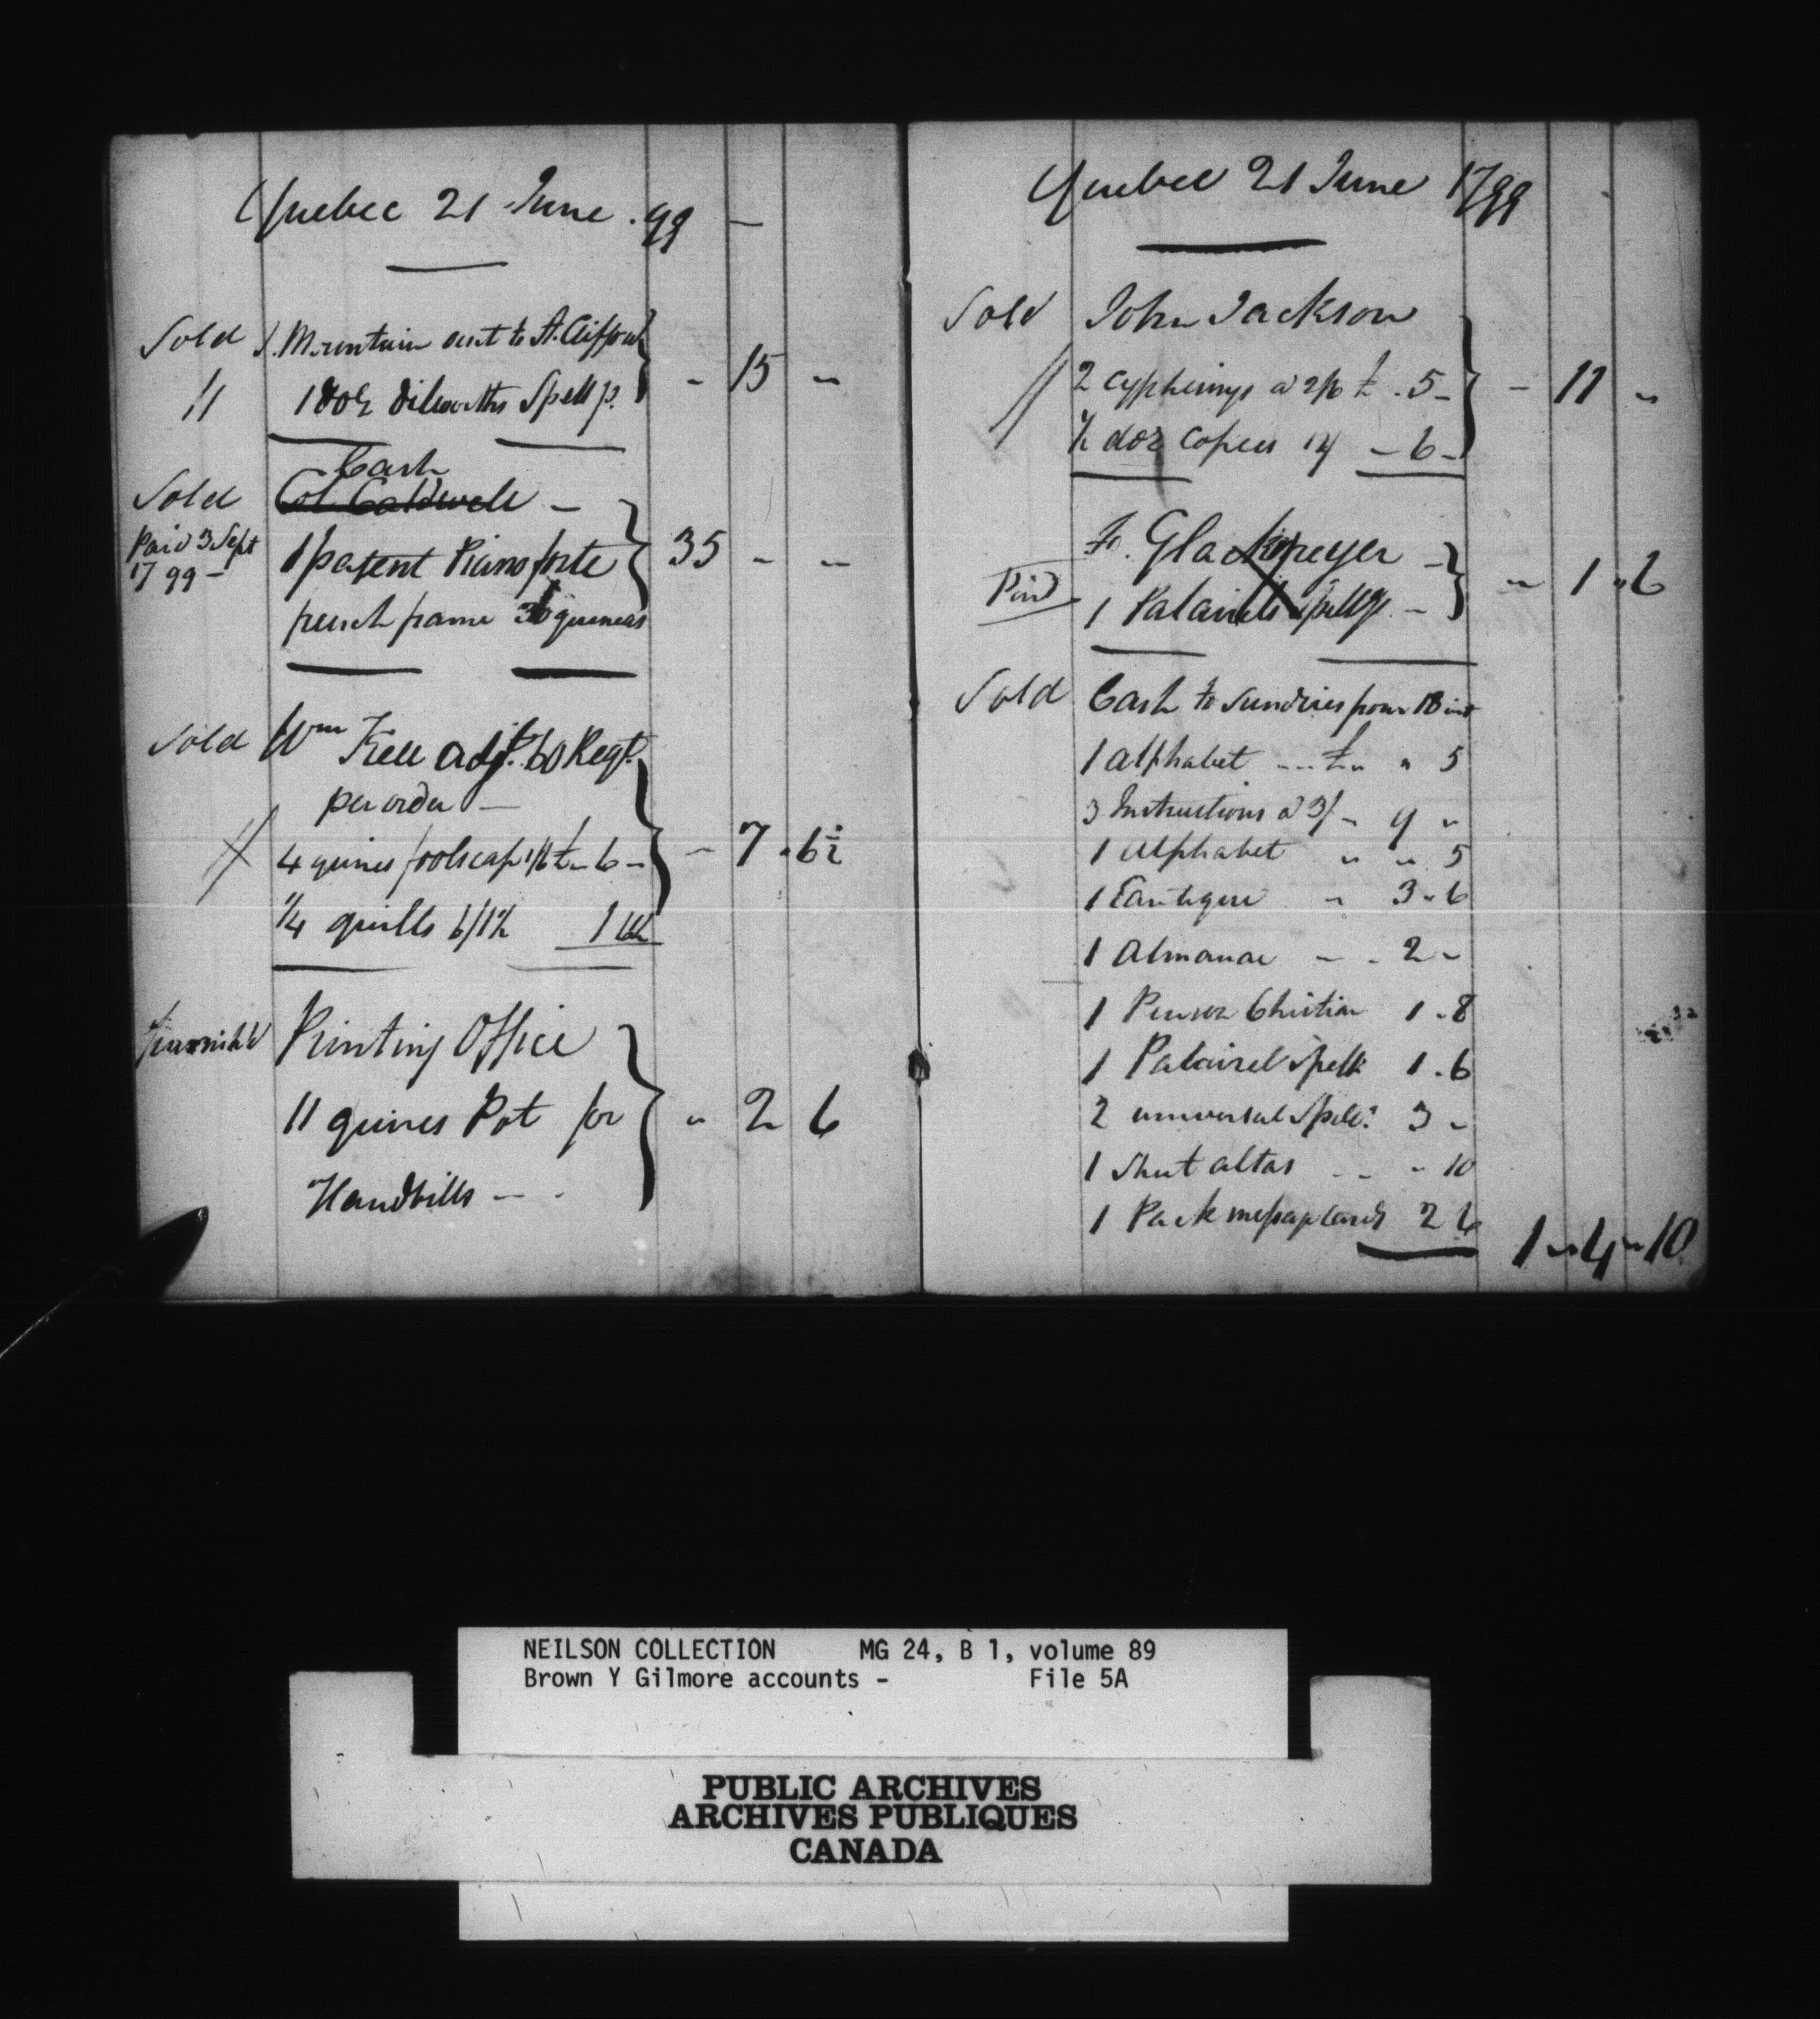 Quebec 21 June . 99 –
Sold J. Mountain sent to A. Clifford
11 1 doz Dilworths Spell p. - 15 -
Cash
Sold Col Caldwell –
Paid 3 Sept 1 patent Piano forte 35 - -
1799 –
french frame 30 guineas
Sold Wm Kell adjt. 60 Regt.
per order –
4 quires foolscap 1/6 £ - 6 - - 7 . 6½
¼ quills 6/1½ 1 6½
furnishd Printing Office
11 quires Pot for - 2 6
Handbills – -
Quebec 21 June 1799
Sold John Jackson
2 cypherings a 2/6 £ . 5 - - 11 -
½ doz Copies 1/ - 6 -
To. Glackmeyer –
Paid 1 Palairets Spellg. – - 1 " 6
Sold Cash to Sundries from 18 inst
1 alphabet - - - £ " " 5
3 Instructions a 3/ - 9 "
1 alphabet " " 5
1 Cantique " 3 " 6
1 Almanac - - 2 -
1 Pensez Chretien 1 . 8
1 Palairet Spell 1 . 6
2 universal Spell: 3 -
1 Sheet atlas - - " 10
1 Pack message cards 2 6
1 " 4 " 10
NEILSON COLLECTION MG 24, B 1, volume 89
Brown Y Gilmore accounts - File 5A
PUBLIC ARCHIVES
ARCHIVES PUBLIQUES
CANADA